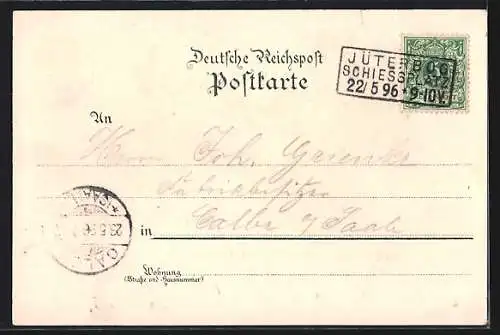 Deutsche Reichspost
Postkarte
JÜTERBOG
SCHIESSPLATZ
22/5 96 * 9-10V.
An
Herrn Joh.
Fabrikbesitzer
in Calbe a/Saale
CAL
23.5.96
Wohnung
(Straße und Hausnummer)